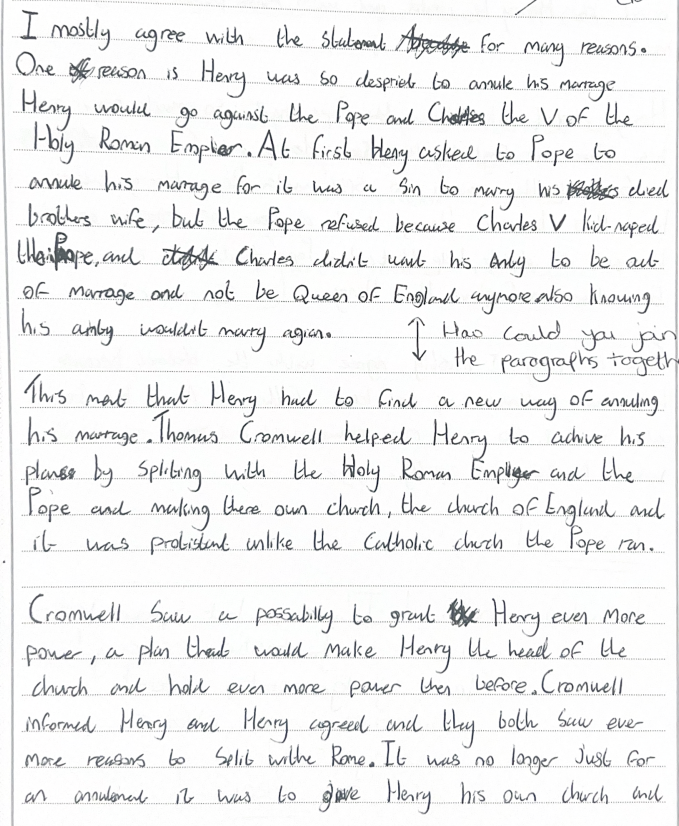 I mostly agree with the statement for many reasons.
One reason is Henry was so despriet to annule his marrage
Henry would go against the Pope and Charles the V of the
Holy Roman Empier. At first Henry asked to Pope to
annule his marrage for it was a sin to marry his died
brothers wife, but the Pope refused because Charles V kid-naped
the Pope, and Charles didn't want his Anty to be out
of marrage and not be Queen of England anymore also knowing
his anty wouldn't marry agian.
How could you join
the paragraphs togeth
This ment that Henry had to find a new way of annuling
his marrage. Thomas Cromwell helped Henry to achive his
plans by spliting with the Holy Roman Empiyer and the
Pope and making there own church, the church of England and
it was protistent unlike the Catholic church the Pope ran.
Cromwell saw a possabilly to grant Henry even more
power, a plan that would make Henry the head of the
church and hold even more power then before. Cromwell
informed Henry and Henry agreed and they both saw ever
more reasons to split withe Rome. It was no longer just for
an annulment it was to give Henry his own church and